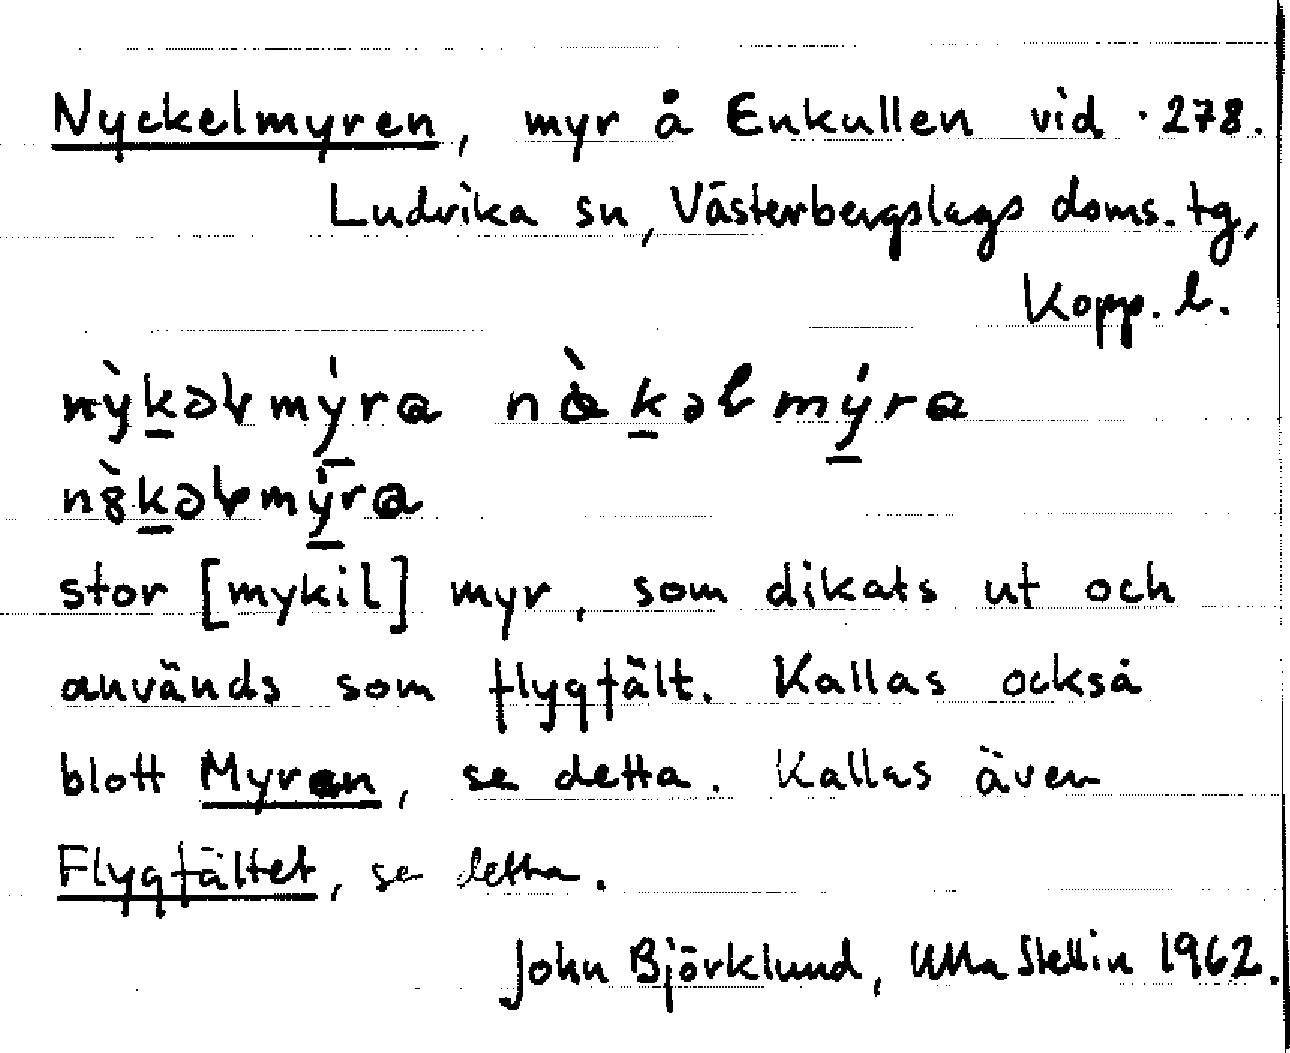 Nyckelmyren, myr å Enkullen vid · 278.
Ludvika sn, Västerbergslags doms. tg,
Kopp. l.
stor [mykil] myr, som dikats ut och
används som flygfält. Kallas också
blott Myren, se detta. Kallas även
Flygfältet, se detta.
John Björklund, Ulla Stellin 1962.